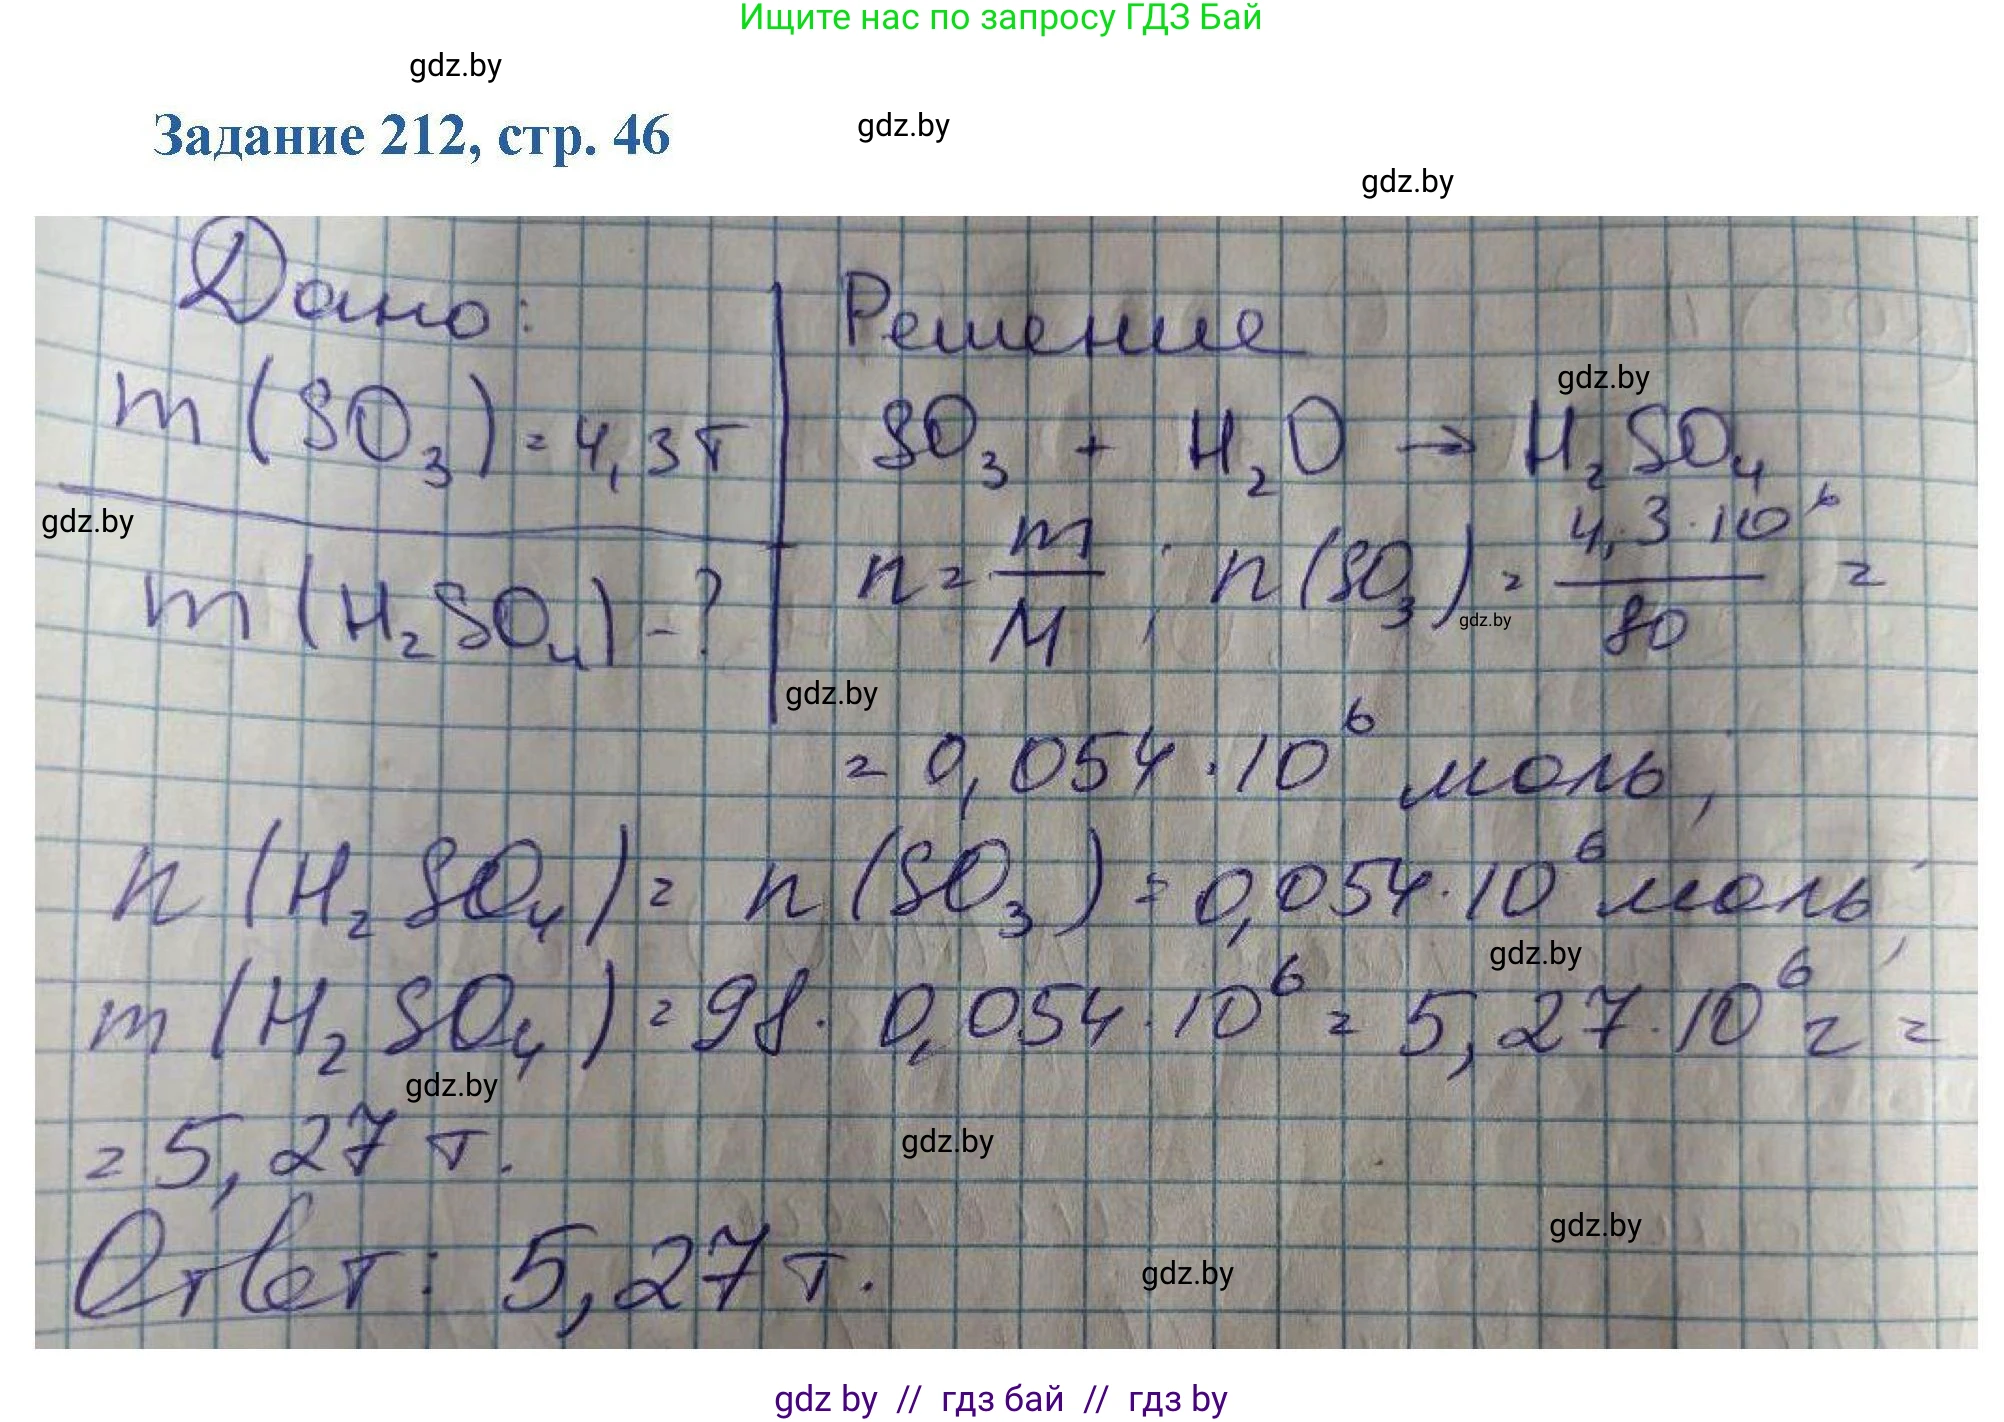 Ищите нас по запросу ГДЗ Бай
gdz.by
Задание 212, стр. 46
gdz.by
gdz.by
Дано:
Решение
gdz.by
m(SO₃) = 4,3 т
SO₃ + H₂O → H₂SO₄
gdz.by
m(H₂SO₄) - ?
n = m/M; n(SO₃) = 4,3·10⁶/80 =
gdz.by
gdz.by
= 0,054·10⁶ моль;
n(H₂SO₄) = n(SO₃) = 0,054·10⁶ моль;
gdz.by
m(H₂SO₄) = 98·0,054·10⁶ = 5,27·10⁶ г =
gdz.by
= 5,27 т.
gdz.by
gdz.by
Ответ: 5,27 т.
gdz.by
gdz by // гдз бай // гдз by